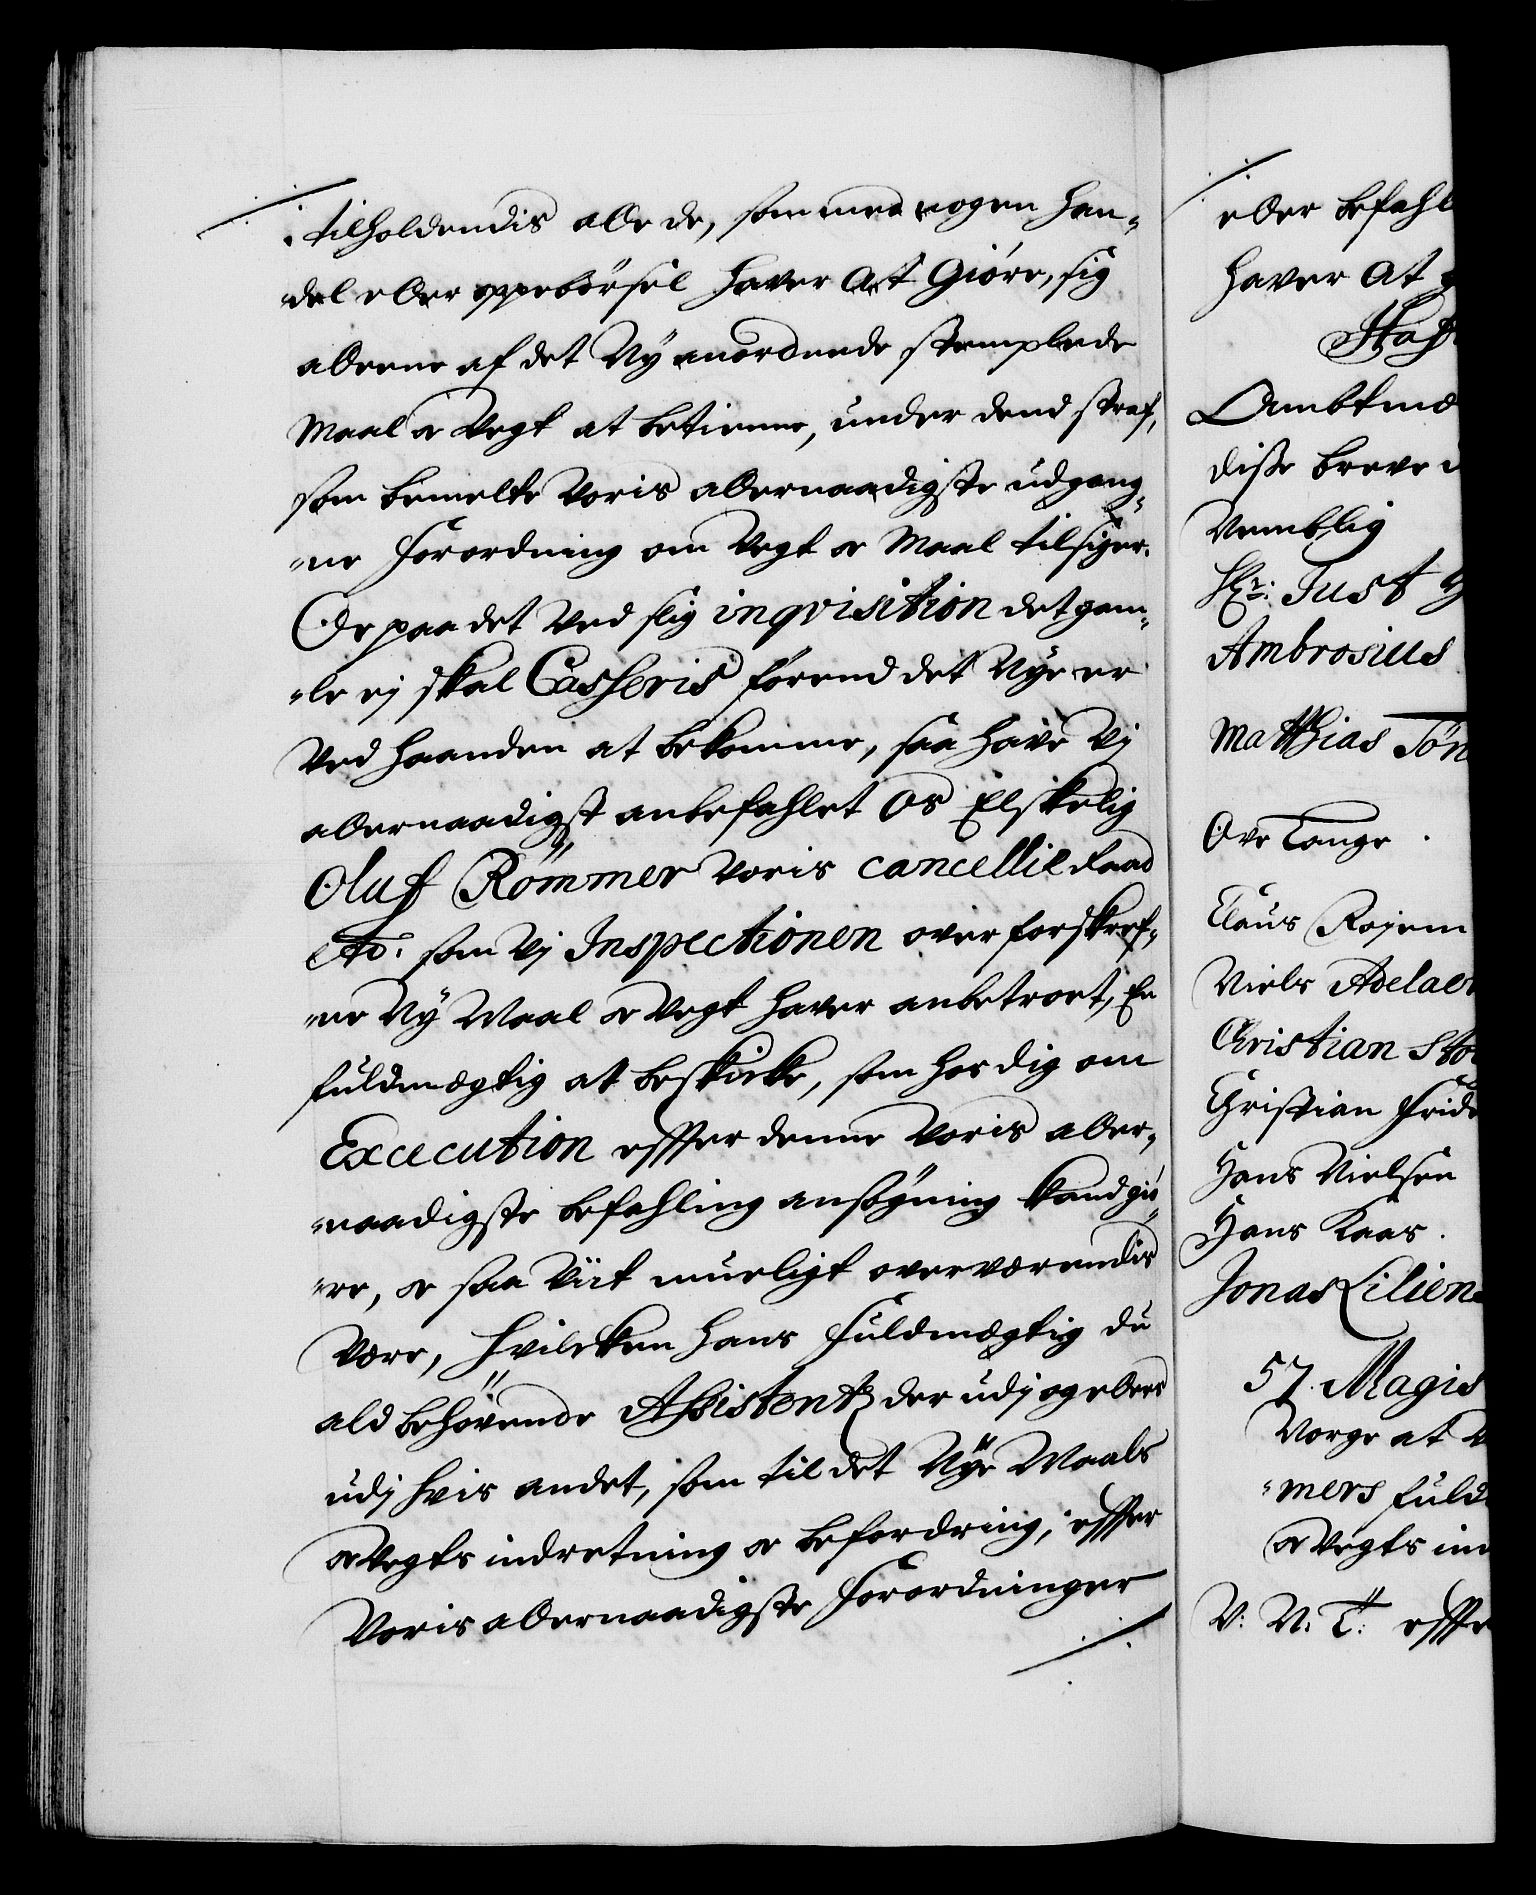 tilholdendis alle de, som med nogen han-
del eller oppebörsel haver at Giöre, sig
allene af det Ny anordnede stemplede
Maal oc Vegt at betienne, under dend straf,
som bemelte Voris allernaadigste udgang-
ne Forordning om Vegt oc Maal tilsiger.
Oc paa det Ved slig inqvisition det gam-
le ej skal Casseris förend det Nye er
Ved haanden at bekomme, saa have Vj
allernaadigst anbefahlet Os Elskelig
Oluf Römmer Voris Cancellie Raad
etc: som Vj Inspectionen over forskref-
ne Ny Maal oc Vegt haver anbetroet, En
fuldmegtig at beskicke, som hos dig om
Execution effter denne Voris aller-
naadigste befahling ansögning kand giö-
re, oc saa Vit mueligt overværendis
Være, Hvilcken hans Fuldmegtig du
ald behövende Assistentz der udj og ellers
udj hvis andet, som til det Nye Maals
oc Vegts indretning oc befordring, effter
Voris allernaadigste Forordninger
eller befahl
haver at
Haf
Ambtmæ
disse breve
Nemblig
Hr: Just
Ambrosius
Matthias Tön
Ove Lange.
Claus Rojem
Niels Adelaer
Christian Sto
Christian Frid
Hans Nielsen
Hans Kaas.
Jonas Lilien
57. Magis
Norge at
mers fuld
oc Vegts in
V: N: T: effte